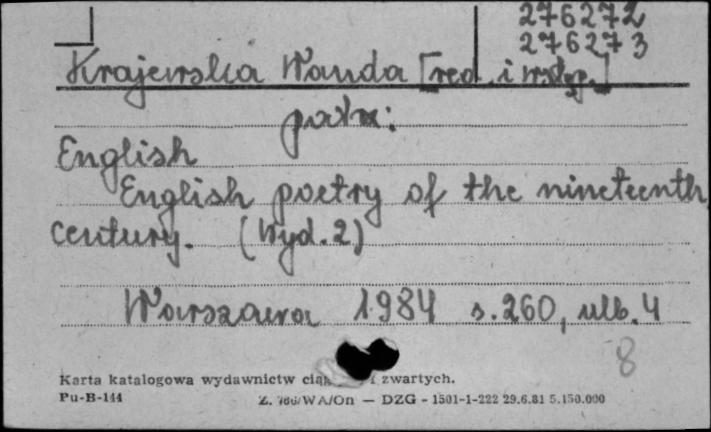 276272
276273
Krajewska Wanda [red. i wstęp.]
patrz:
English
English poetry of the nineteenth
century. (Wyd. 2)
Warszawa 1984 s. 260, ulb. 4
8
Karta katalogowa wydawnictw zwartych.
Pu-B-144 Z. WA/On — DZG - 1501-1-222 29.6.81 5.150.000